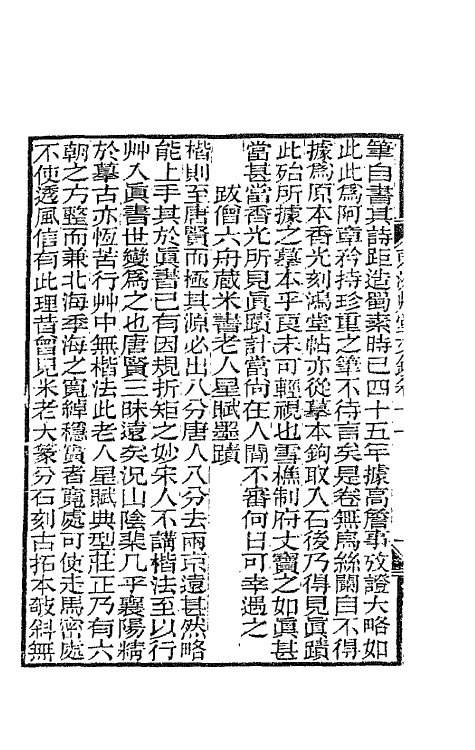 筆自書其詩距造蜀素時已四十五年據高詹事攷證大略如
此此爲阿章矜持珍重之筆不待言矣是卷無烏絲闌自不得
據爲原本香光刻鴻堂帖亦從摹本鉤取入石後乃得見眞蹟
此殆所據之摹本乎良未可輕視也雪樵制府丈寶之如眞甚
當甚當香光所見眞蹟計當尙在人閒不審何日可幸遇之
跋僧六舟藏米書老人星賦墨蹟
楷則至唐賢而極其源必出八分唐人八分去兩京遠甚然略
能上手其於眞書已有因規折矩之妙宋人不講楷法至以行
艸入眞書世變爲之也唐賢三昧遠矣況山陰棐几乎襄陽精
於摹古亦恆苦行艸中無楷法此老人星賦典型莊正乃有六
朝之方整而兼北海季海之寬綽穩實者寬處可使走馬密處
不使透風信有此理昔曾見米老大篆分石刻古拓本攲斜無